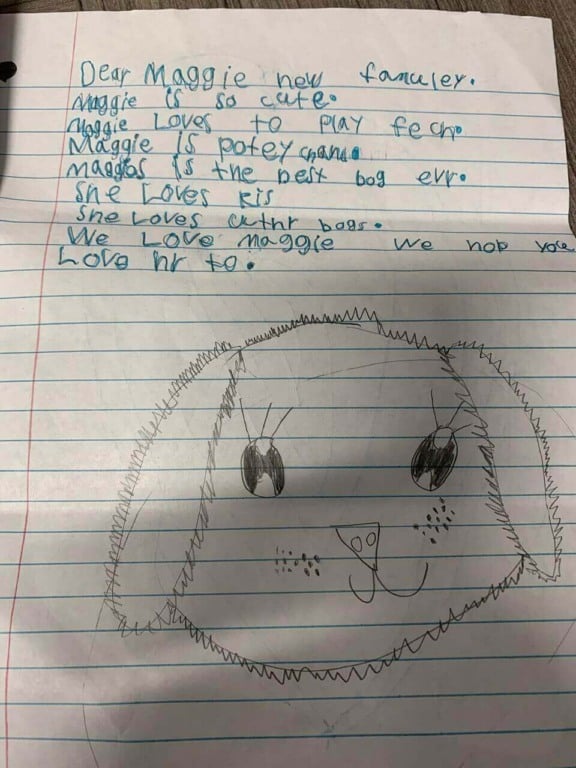 Dear Maggie new famuley.
Maggie is so cute.
Maggie Loves to play fech.
Maggie is potey chand.
Maggos is the best bog err.
She Loves kis
She Loves uthr bogs.
We Love maggie we hop you
Love hr to.